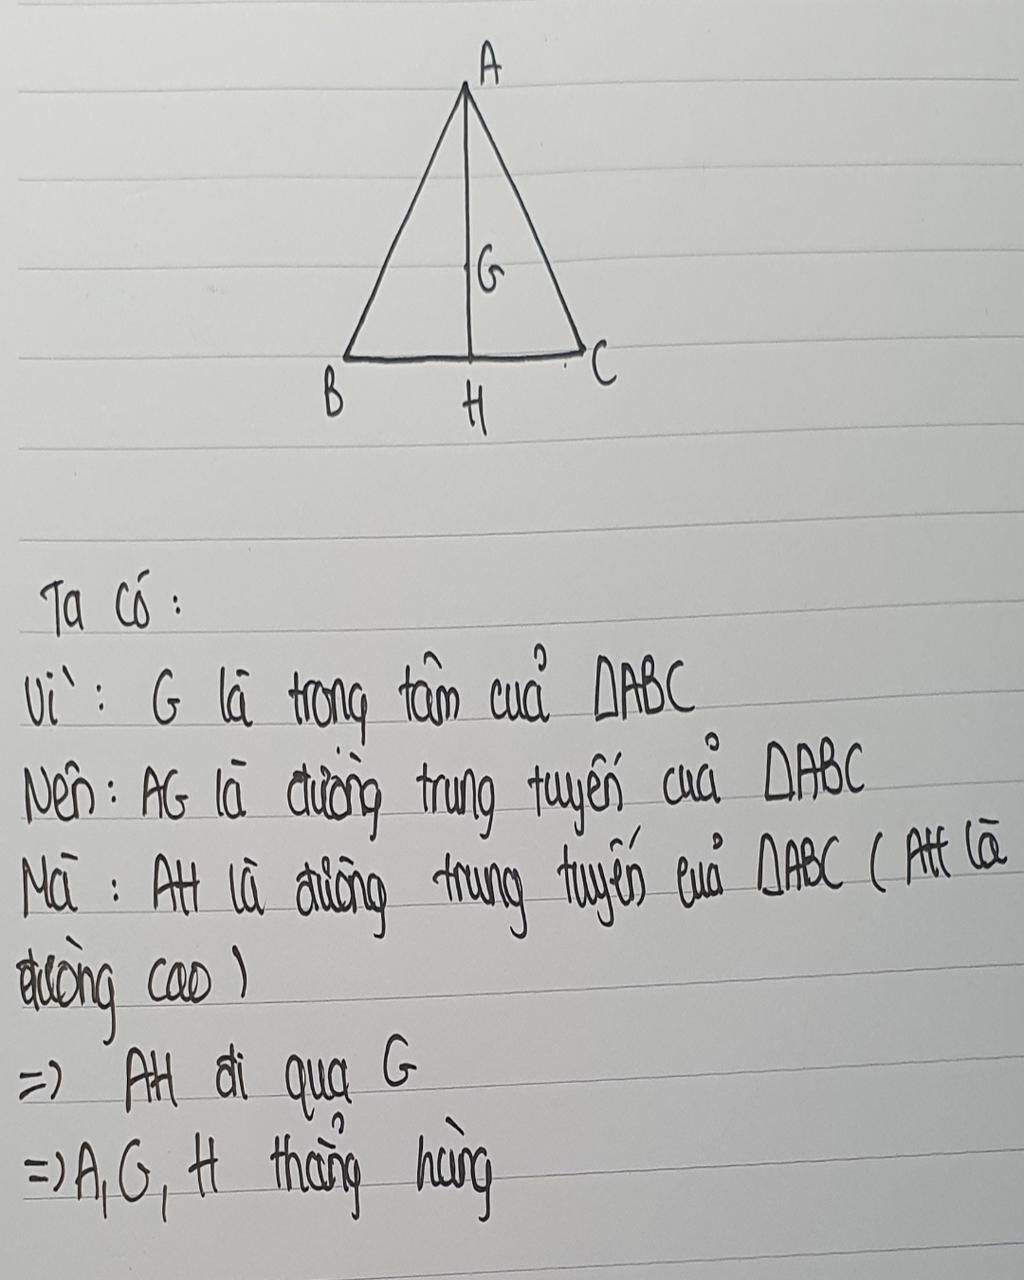 A
G
B
H
C
Ta có :
Vì : G là trong tâm cuả ΔABC
Nên : AG là đường trung tuyến cuả ΔABC
Mà : AH là đường trung tuyến cuả ΔABC ( AH là
đường cao )
=> AH đi qua G
=> A, G, H thẳng hàng